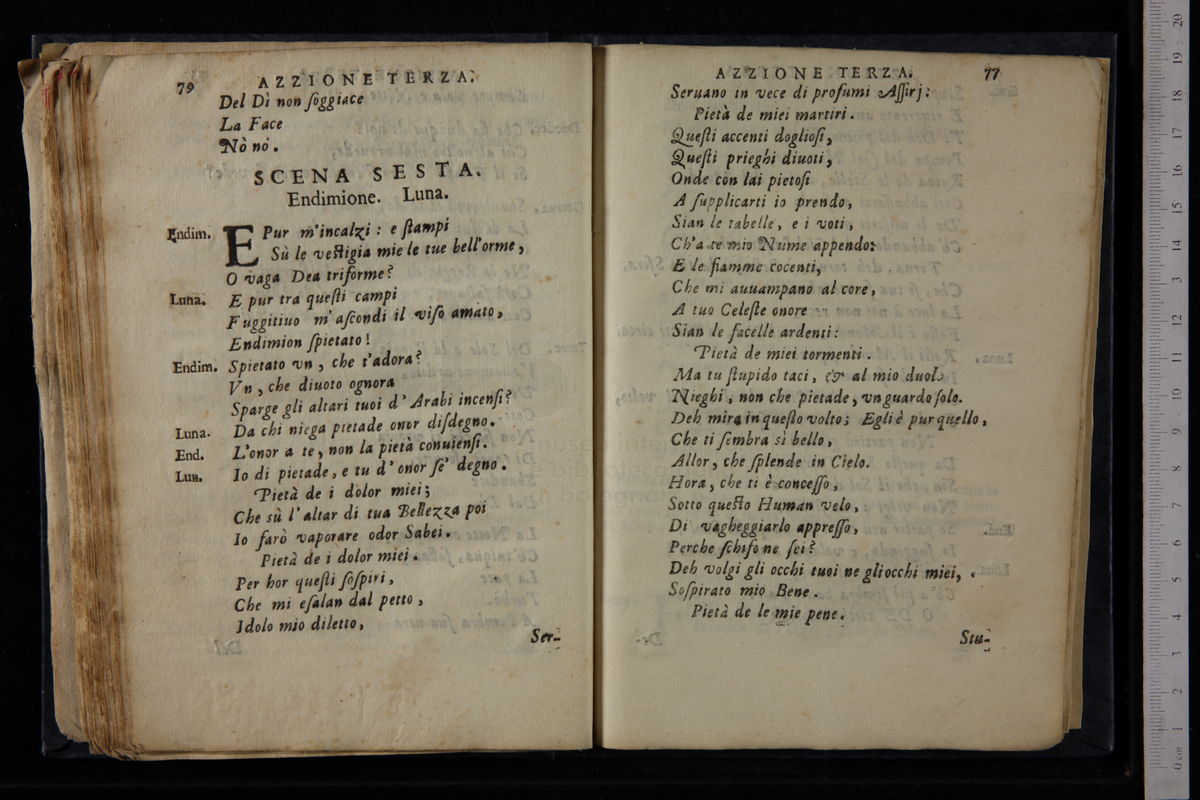 79 AZZIONE TERZA.
Del Dì non ſoggiace
La Face
Nò nò.
SCENA SESTA.
Endimione. Luna.
Endim. E Pur m'incalzi: e ſtampi
Sù le veſtigia mie le tue bell'orme,
O vaga Dea triforme?
Luna. E pur tra queſti campi
Fuggitiuo m'aſcondi il viſo amato,
Endimion ſpietato!
Endim. Spietato vn, che t'adora?
Vn, che diuoto ognora
Sparge gli altari tuoi d'Arabi incenſi?
Luna. Da chi niega pietade onor diſdegno.
End. L'onor a te, non la pietà conuienſi.
Lun. Io di pietade, e tu d'onor ſe' degno.
Pietà de i dolor miei;
Che sù l'altar di tua Bellezza poi
Io farò vaporare odor Sabei.
Pietà de i dolor miei.
Per hor queſti ſoſpiri,
Che mi eſalan dal petto,
Idolo mio diletto,
Ser-
AZZIONE TERZA. 77
Seruano in vece di profumi Aſſirj:
Pietà de miei martiri.
Queſti accenti doglioſi,
Queſti prieghi diuoti,
Onde con lai pietoſi
A ſupplicarti io prendo,
Sian le tabelle, e i voti,
Ch'a te mio Nume appendo:
E le fiamme cocenti,
Che mi auuampano al core,
A tuo Celeſte onore
Sian le facelle ardenti:
Pietà de miei tormenti.
Ma tu ſtupido taci, & al mio duol
Nieghi, non che pietade, vn guardo ſolo.
Deh mira in queſto volto; Egli è pur quello,
Che ti ſembra sì bello,
Allor, che ſplende in Cielo.
Hora, che ti è conceſſo,
Sotto queſto Human velo,
Di vagheggiarlo appreſſo,
Perche ſchifo ne ſei?
Deh volgi gli occhi tuoi ne gli occhi miei,
Soſpirato mio Bene.
Pietà de le mie pene.
Stu-